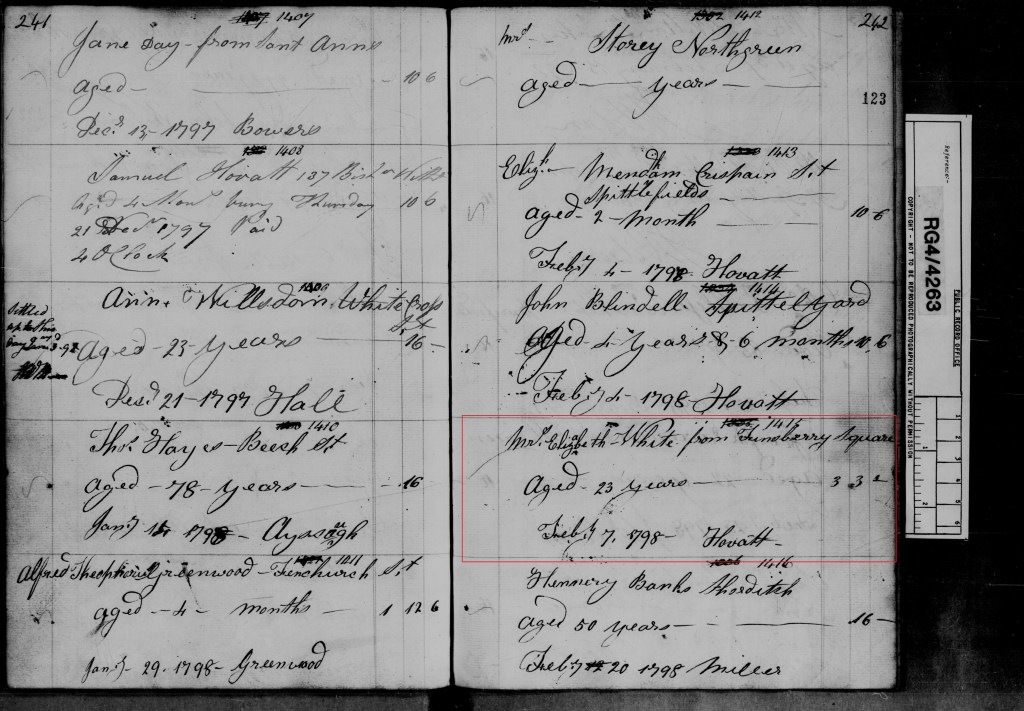 241
1407
Jane Day - from Sant Anns
aged - - 10 6
Decr 13 - 1797 Bowers
1408
Samuel Hovatt 137 Bishr
Aged 4 Mon bury Thursday 10 6
21 Decr 1797 Paid
4 O Clock
Ann Willsdorn White Cross
St
Aged - 23 years - 16 -
Decr 21 - 1797 Hall
1410
Thos Hayes - Beech St
aged - 78 - years - 16
Jany 14 1798 - Ayscough
1411
Alfred Theophilus Greenwood - Fenchurch St
aged - 4 - months - 1 12 6
Jany - 29 - 1798 - Greenwood
1412
242
Mrs - Storey Northgreen
aged - years -
123
1413
Elizh - Mendham Crispain St
Spittlefields
aged - 2 - month - 10 - 6
Feby 4 - 1798 Hovatt
1414
John Blindell Spittel Yard
Aged - 4 years & 6 months 10, 6
Feby 4 - 1798 - Hovatt
1415
Mrs Elizabeth - White from Funsberry Square
Aged - 23 years - 3 3 -
Feby 7. 1798 - Hovatt -
1416
Hennery Banks Shorditch
aged 50 years - 16 -
Feby 20 1798 Miller
Reference:-
PUBLIC RECORD OFFICE
RG4/4263
COPYRIGHT - NOT TO BE REPRODUCED PHOTOGRAPHICALLY WITHOUT PERMISSION
1
2
1
2
3
4
5
6